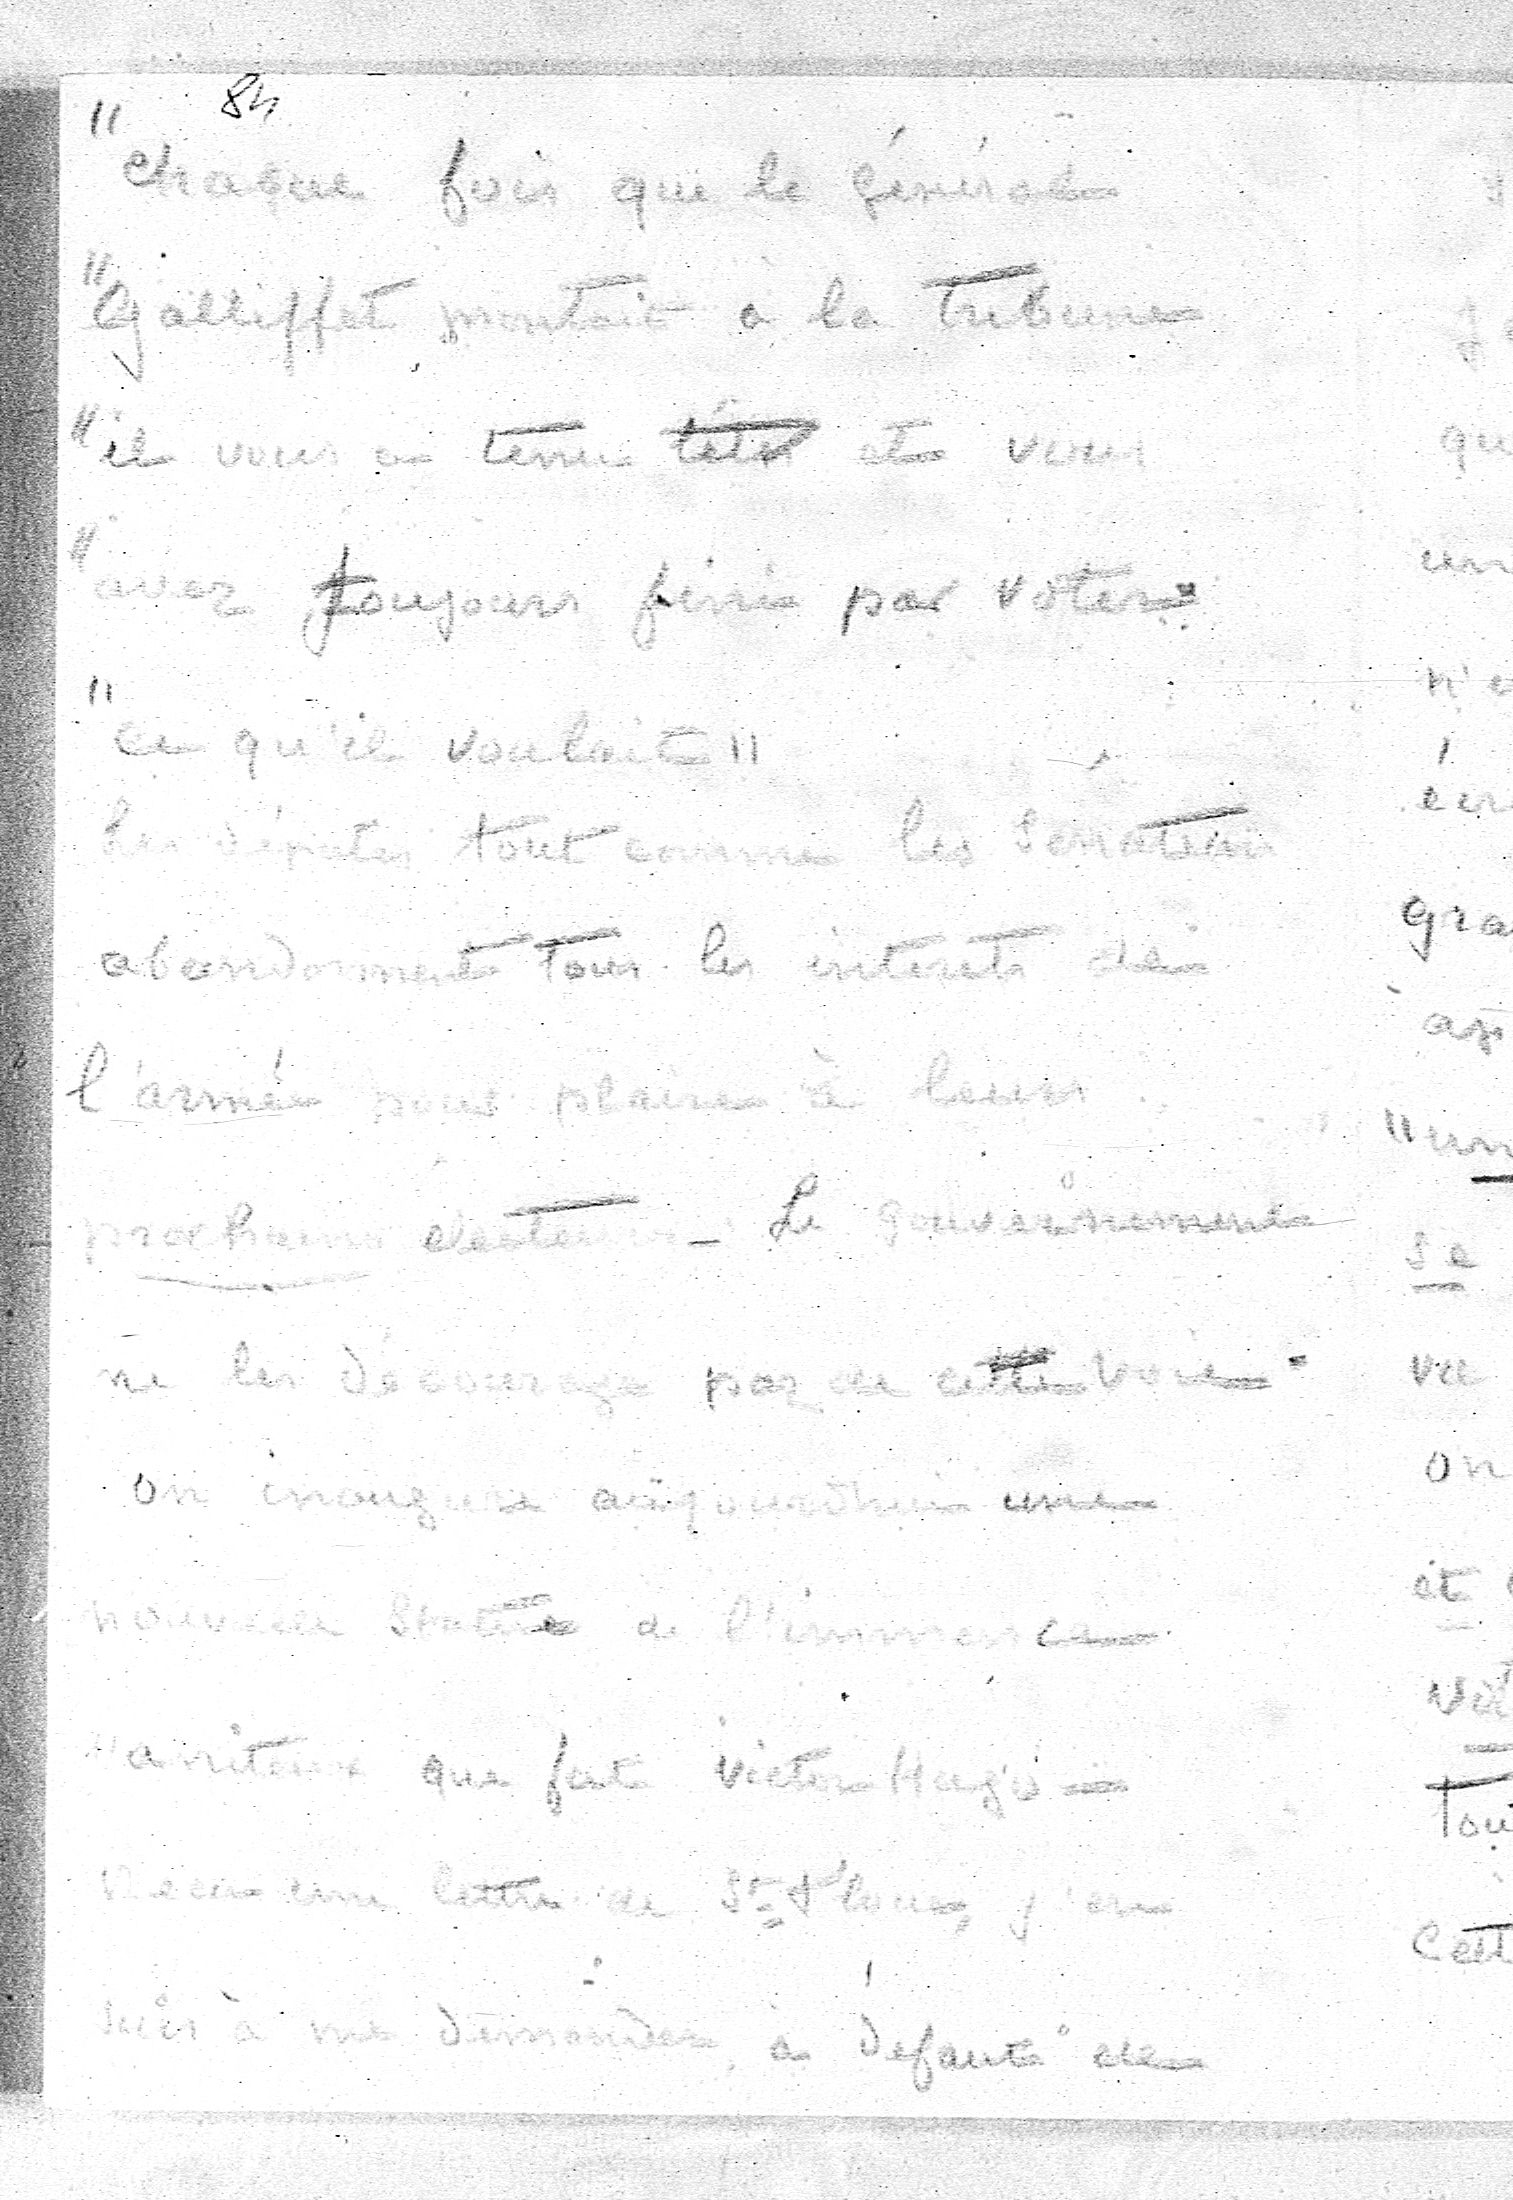 84
"Chaque fois que le Général
"Galliffet montait à la tribune
"il vous a tenu tête et vous
"avez toujours fini par voter
"ce qu'il voulait"
Les députés tout comme les Sénateurs
abandonnent tous les interets de
l'armée pour plaire à leurs
prochains electeurs - Le gouvernement
ne les décourage pas de cette voie.
On inaugure aujourdhui une
nouvelle Statue de l'immense
que fut Victor Hugo -
une lettre de j'en
suis à me demander, à défaut de